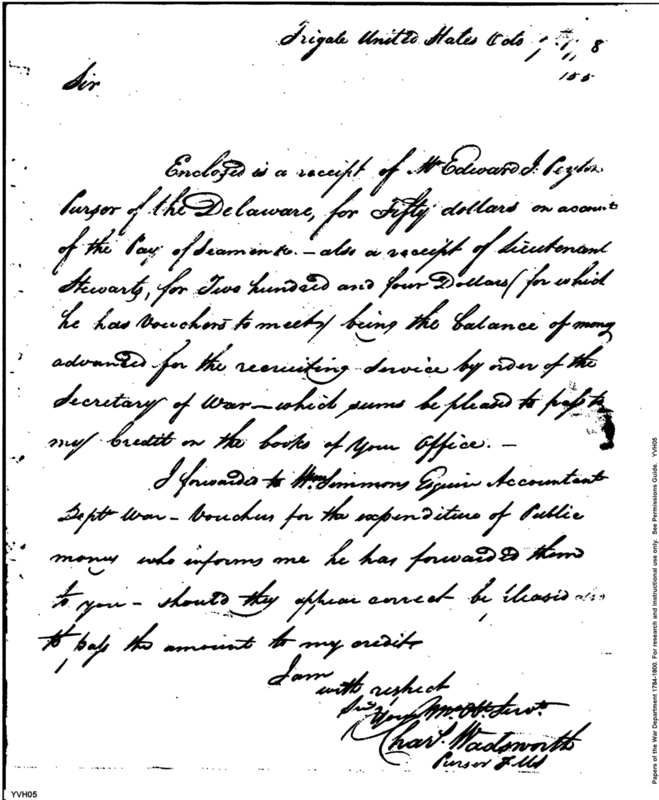 Frigate United States
8
Sir
Enclosed is a receipt of Mr Edward J. Peyton
Pursor of the Delaware, for Fifty dollars on account
of the Pay of Seamen &c. - also a receipt of Lieutenant
Stewarts, for Two hundred and four Dollars (for which
he has Vouchers to meet) being the balance of money
advanced for the recruiting service by order of the
Secretary of War - which sums be pleased to pass to
my Credit on the books of Your Office. -
I forwarded to Wm Simmons Esquire Accountant
Dept War - Vouchers for the expenditure of Public
money who informs me he has forwarded them
to you - should they appear correct be pleased also
to pass the amount to my credit
I am
with respect
Sir Your Servt
Chas. Wadsworth
Purser
YVH05
Papers of the War Department 1784-1800. For research and instructional use only. See Permissions Guide. YVH05